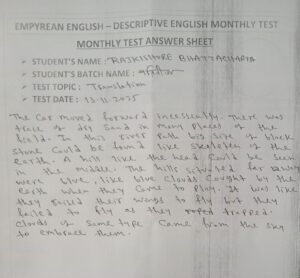 EMPYREAN ENGLISH – DESCRIPTIVE ENGLISH MONTHLY TEST
MONTHLY TEST ANSWER SHEET
➤ STUDENT'S NAME : RAJKISHORE BHATTACHARYA
➤ STUDENT'S BATCH NAME :
➤ TEST TOPIC : Translation
➤ TEST DATE : 13-11-2025
The Car moved forward incessantly. There was
trace of dry sand in many places of the
field. In this rivers path big size black
stone Could be found like skeleton of the
earth. A hill like the head Could be seen
in the middle. The hills situated far away
were blue, like blue clouds Caught by the
earth when they Came to play. It was like
they raised their wings to fly but they
failed to fly as they roped trapped.
clouds of same type Came from the sky
to embrace them.